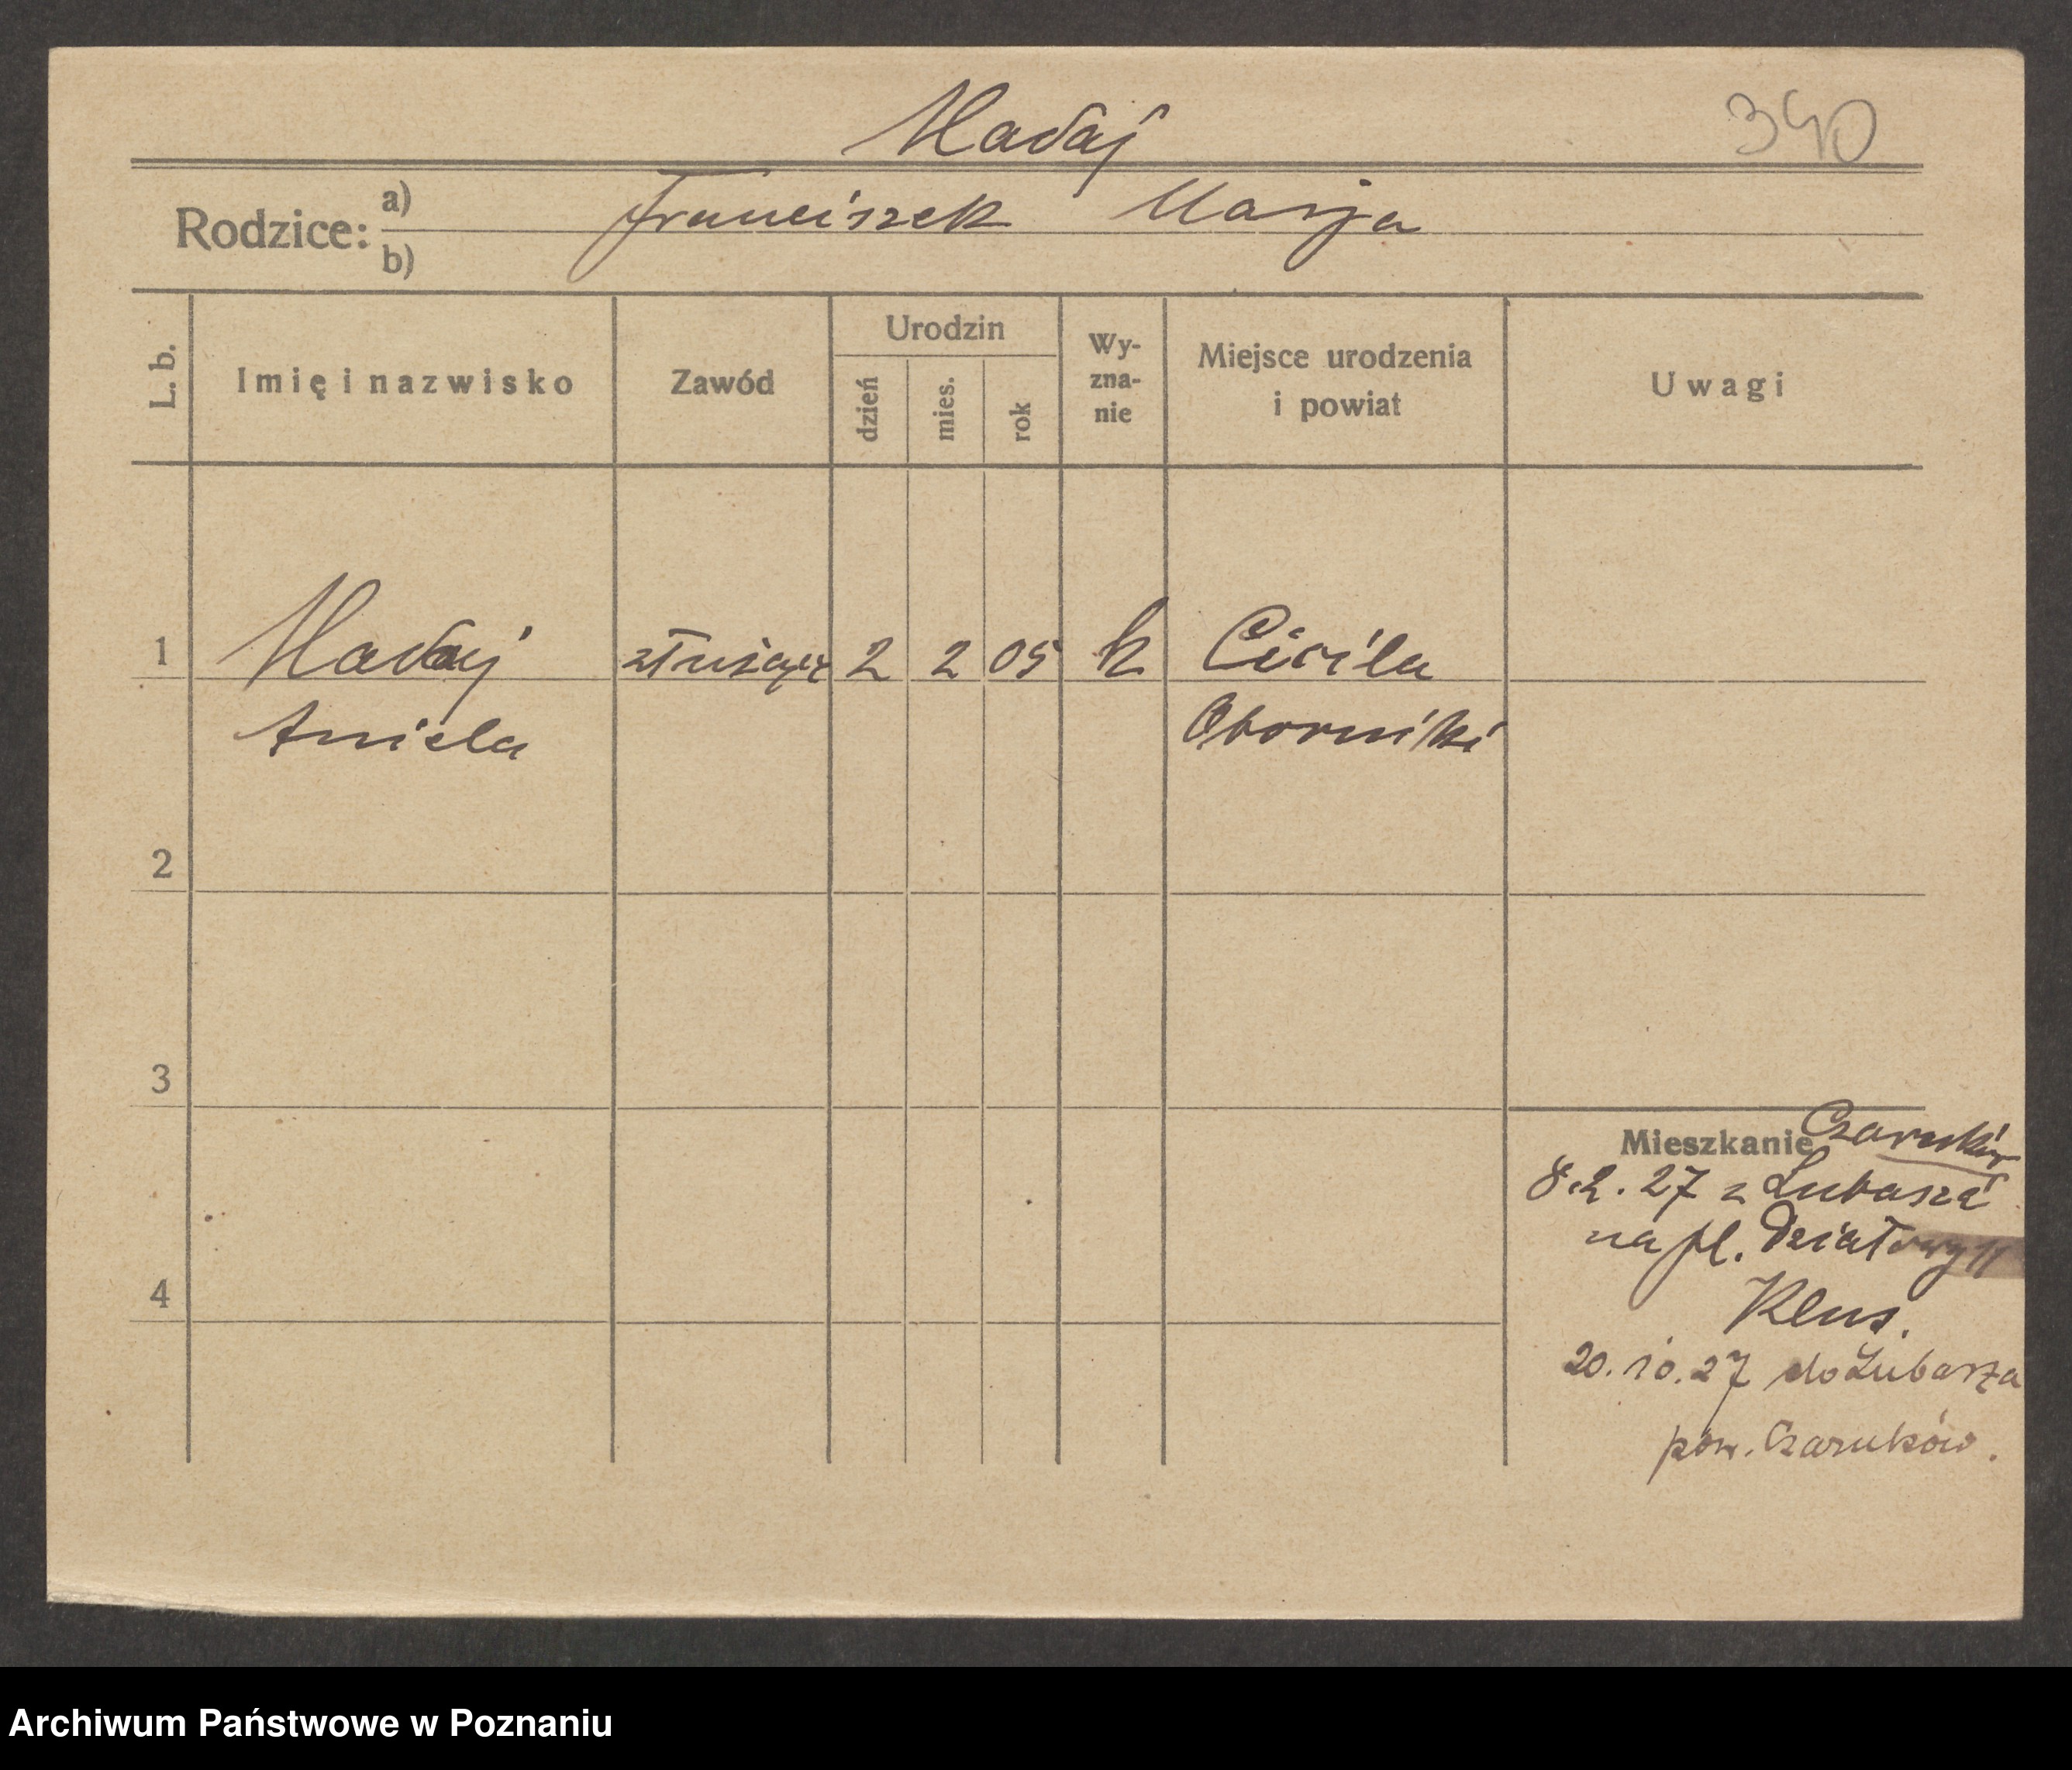 Madaj
390
Rodzice: a) Franciszek Marja
b)
L. b.
Imię i nazwisko
Zawód
Urodzin
dzień
mies.
rok
Wy-
zna-
nie
Miejsce urodzenia
i powiat
Uwagi
1 Madaj 2 2 05 k
Aniela
Oborniki
2
3
4
Mieszkanie
8.2.27 z Lubasza
na pl. Działowy 11
20.10.27 do Lubasza
pow. Czarnków.
Archiwum Państwowe w Poznaniu